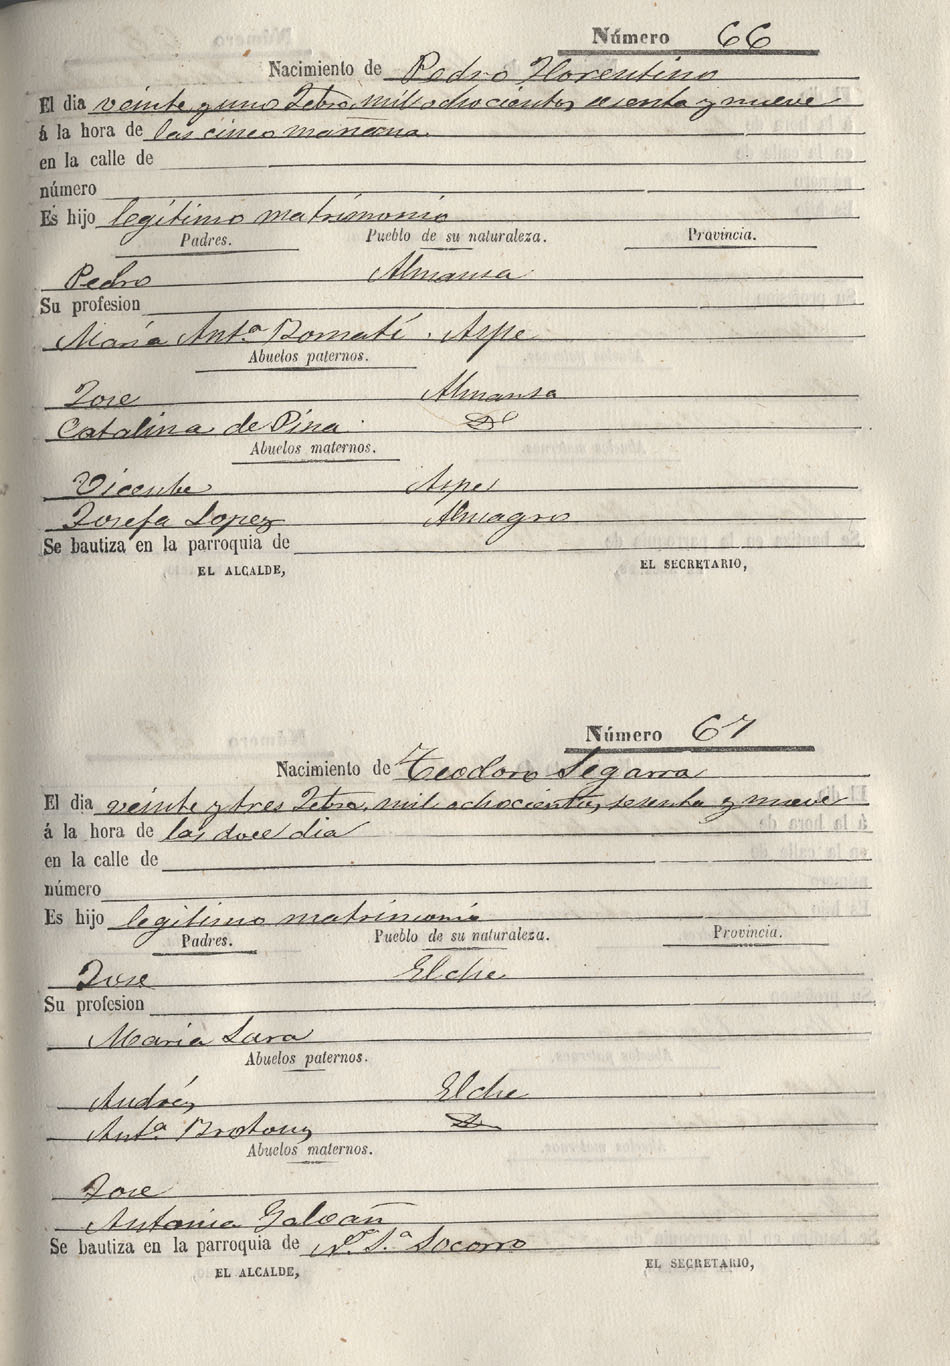 Número 66
Nacimiento de Pedro Florentino
El dia veinte y uno Febro. mil ochocientos sesenta y nueve
á la hora de las cinco mañana.
en la calle de
número
Es hijo legítimo matrimonio
Padres. Pueblo de su naturaleza. Provincia.
Pedro Almansa
Su profesion
Maria Ant.ª Bomatí. Aspe
Abuelos paternos.
Jose Almansa
Catalina de Pina Dº
Abuelos maternos.
Vicente Aspe
Josefa Lopez Almagro
Se bautiza en la parroquia de
EL ALCALDE, EL SECRETARIO,
Número 67
Nacimiento de Teodoro Segarra
El dia veinte y tres Febro. mil ochocientos, sesenta y nueve
á la hora de las doce dia
en la calle de
número
Es hijo legitimo matrimonio
Padres. Pueblo de su naturaleza. Provincia.
Jose Elche
Su profesion
Maria Lara
Abuelos paternos.
Andrés Elche
Ant.ª Brotons
Abuelos maternos.
Jose
Antonia Galvañ
Se bautiza en la parroquia de N.ª S.ª Socorro
EL ALCALDE, EL SECRETARIO,